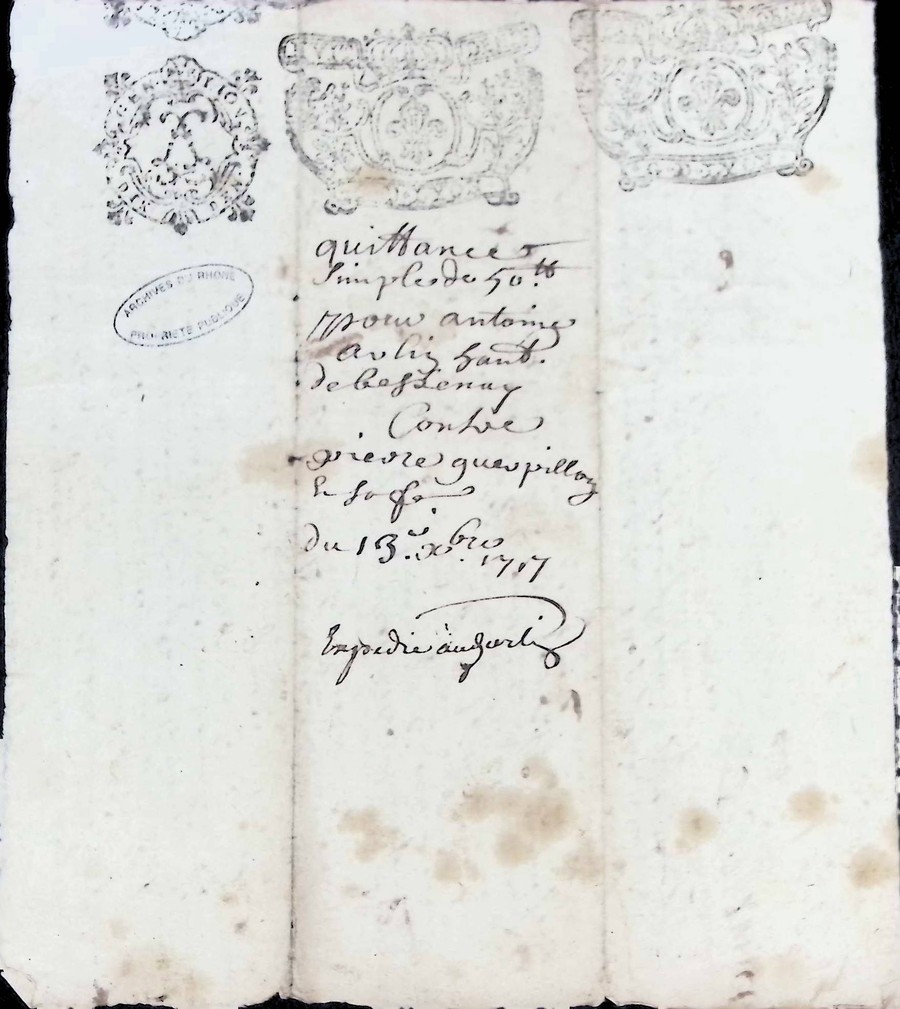 ARCHIVES DU RHONE
PROPRIETE PUBLIQUE
quittance
simple de 50.tt
pour antoine
hant.
de bessenay
Contre
pierre guerpillon
& sa fe
du 13.e xbre 1717
Expedié au partie